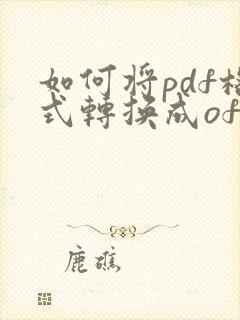 如何将pdf格
式轉換成of
鹿礁